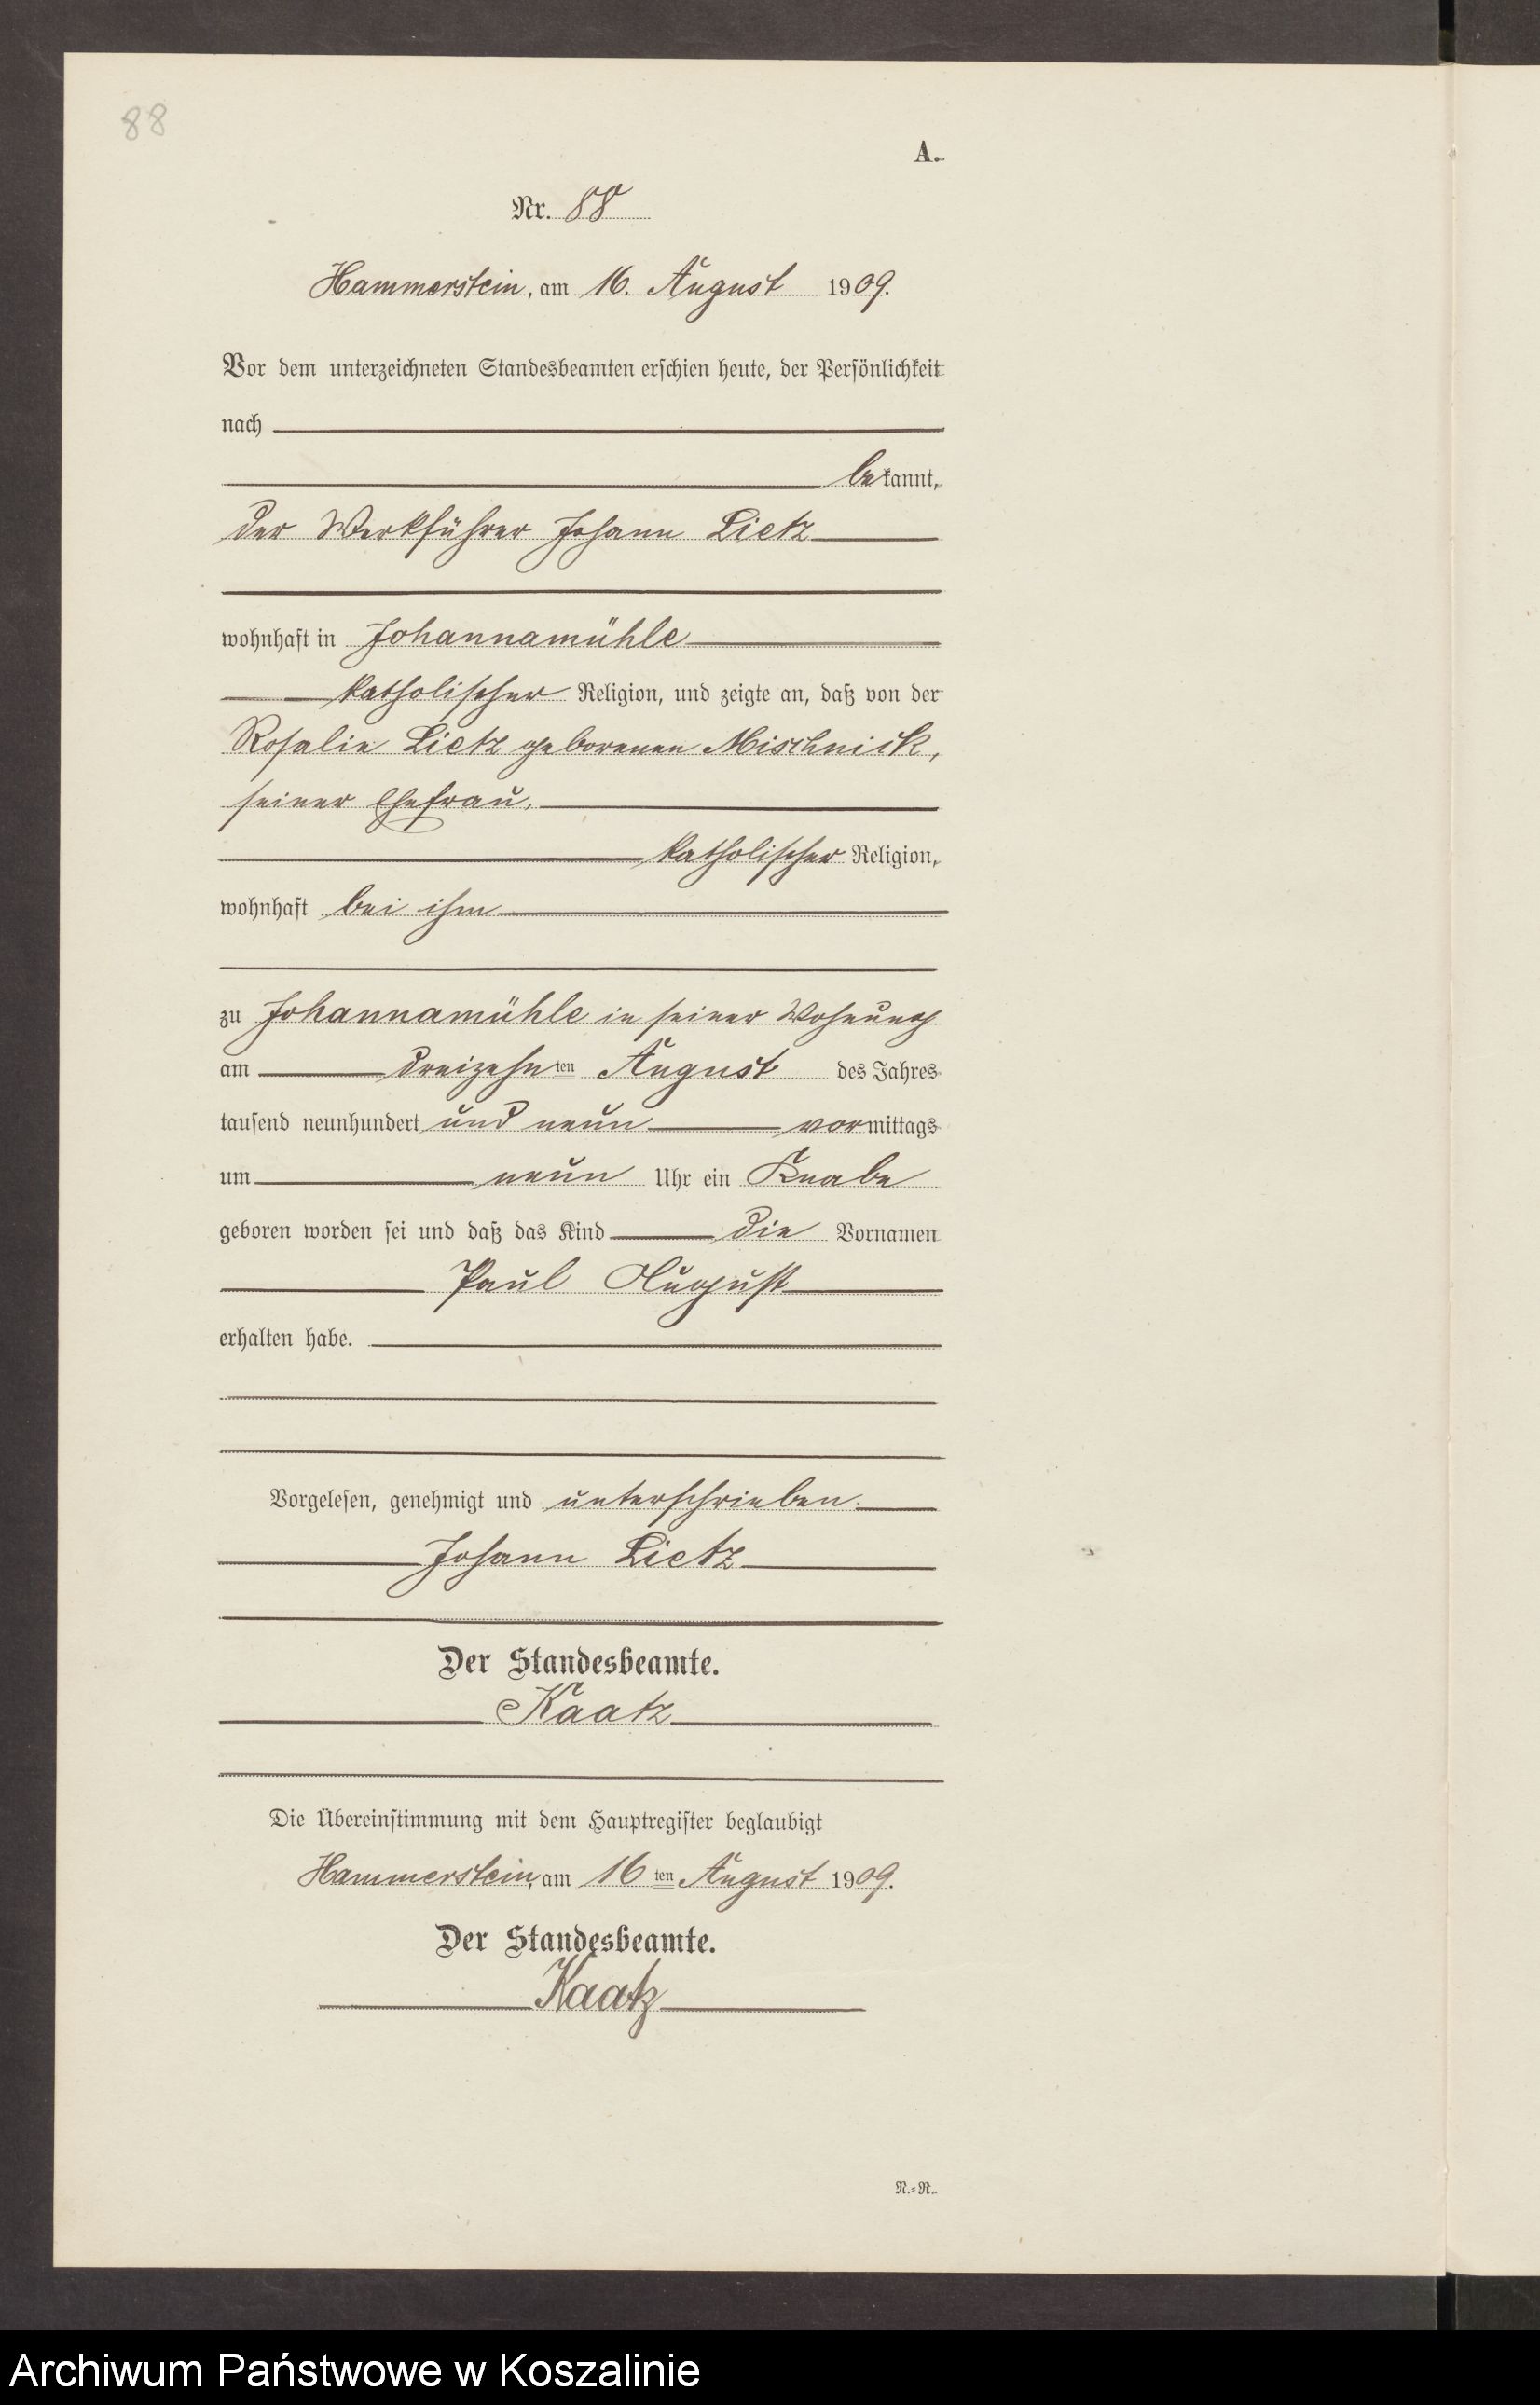 88
A.
Nr. 88
Hammerstein, am 16. August 1909.
Vor dem unterzeichneten Standesbeamten erschien heute, der Persönlichkeit
nach
bekannt,
der Werkführer Johann Lietz
wohnhaft in Johannamühle
katholischer Religion, und zeigte an, daß von der
Rosalie Lietz geborenen Mischnick,
seiner Ehefrau,
katholischer Religion,
wohnhaft bei ihm
zu Johannamühle in seiner Wohnung
am dreizehnten August des Jahres
tausend neunhundert und neun vormittags
um neun Uhr ein Knabe
geboren worden sei und daß das Kind die Vornamen
Paul August
erhalten habe.
Vorgelesen, genehmigt und unterschrieben.
Johann Lietz
Der Standesbeamte.
Kaatz
Die Übereinstimmung mit dem Hauptregister beglaubigt
Hammerstein, am 16ten August 1909.
Der Standesbeamte.
Kaatz
N.=R.
Archiwum Państwowe w Koszalinie